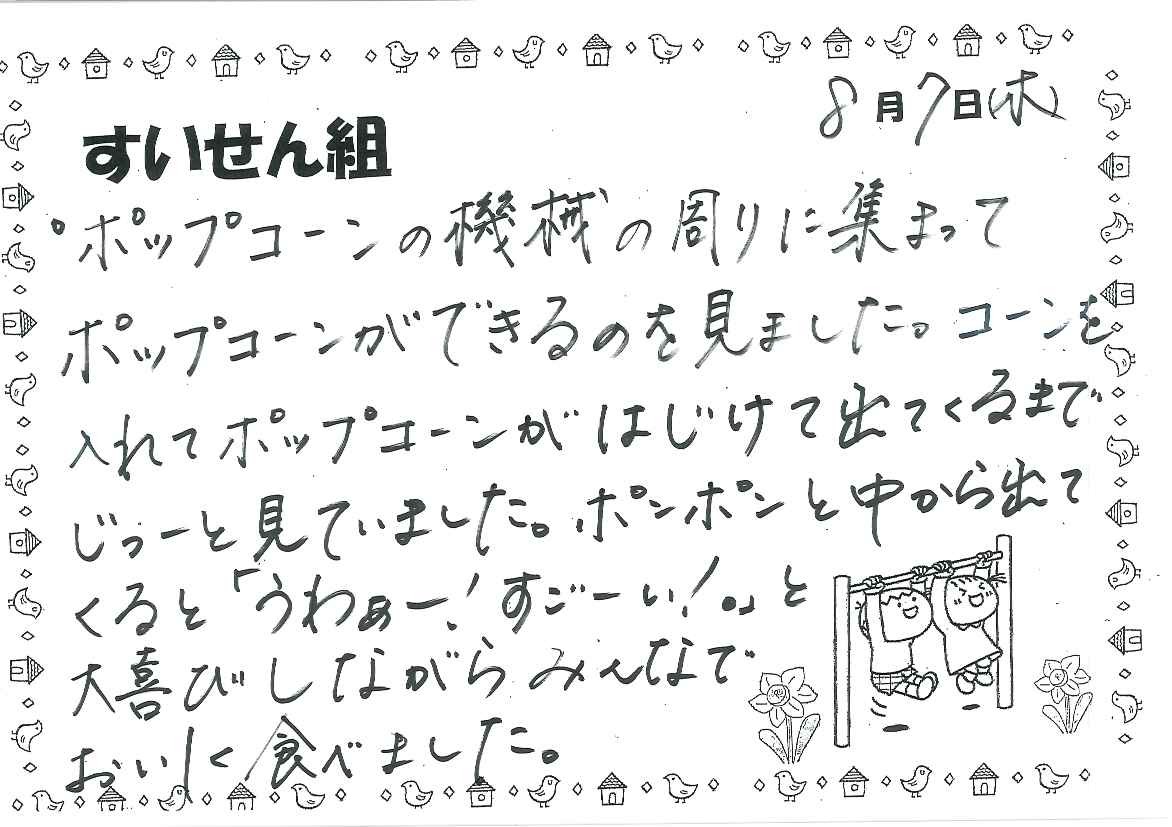 8月7日(木)
すいせん組
・ポップコーンの機械の周りに集まって
ポップコーンができるのを見ました。コーンを
入れてポップコーンがはじけて出てくるまで
じっーと見ていました。ポンポンと中から出て
くると「うわぁー!すごーい!。」と
大喜びしながらみんなで
おいしく食べました。